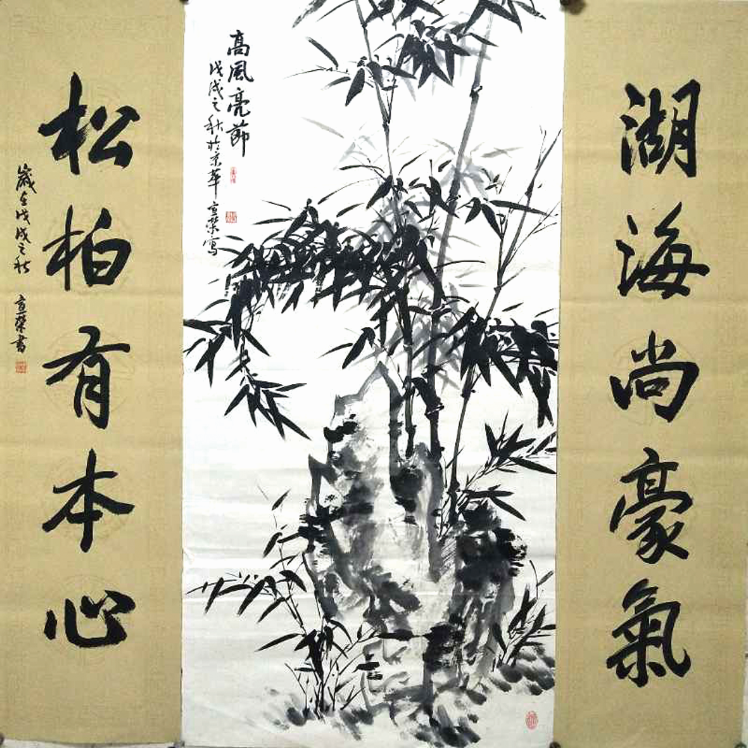 湖海尚豪氣
高風亮節
戊戌之秋於京華宣榮寫
松柏有本心
歲在戊戌之秋
宣榮書